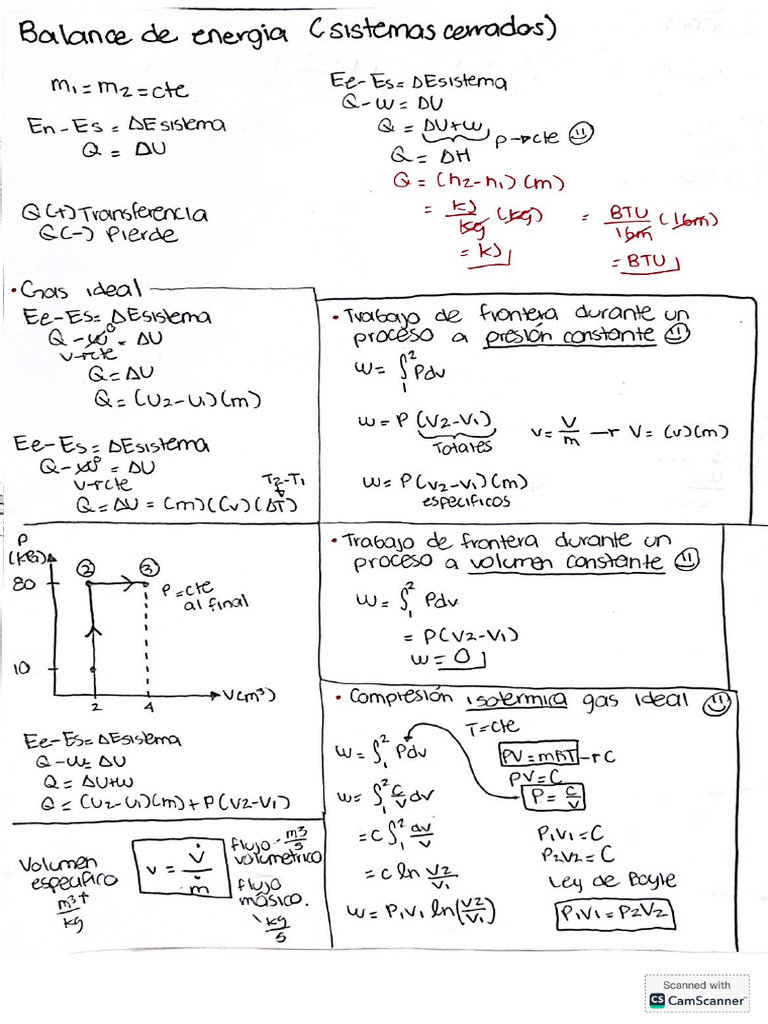 Balance de energia (sistemas cerrados)
m1 = m2 = cte
En - Es = ΔEsistema
Q = ΔU
Q(+) Transferencia
Q(-) Pierde
Ee - Es = ΔEsistema
Q - W = ΔU
Q = ΔU+W
P→cte
Q = ΔH
Q = (h2-h1).(m)
= kJ/kg (kg) = BTU/lbm (lbm)
= kJ = BTU
• Gas ideal
Ee - Es = ΔEsistema
Q - W⁰ = ΔU
V→cte
Q = ΔU
Q = (U2-U1)(m)
Ee - Es = ΔEsistema
Q - W⁰ = ΔU
V→cte
T2-T1
Q = ΔU = (m)(Cv)(ΔT)
• Trabajo de frontera durante un
proceso a presión constante
W = ∫₁² Pdv
W = P (V2-V1)
Totales
v = V/m → V = (v)(m)
W = P(v2-v1)(m)
especificos
P
(kPa)
80
10
2
3
P = cte
al final
2
4
V(m³)
Ee - Es = ΔEsistema
Q - W = ΔU
Q = ΔU+W
Q = (U2-U1)(m) + P(V2-V1)
• Trabajo de frontera durante un
proceso a volumen constante
W = ∫₁² Pdv
= P(V2-V1)
W = 0
• Compresión isotermica gas ideal
T = cte
W = ∫₁² Pdv
W = ∫₁² C/V dv
= C ∫₁² dv/v
= C ln V2/V1
W = P1V1 ln(V2/V1)
PV = mRT → C
PV = C
P = C/V
P1V1 = C
P2V2 = C
Ley de Boyle
P1V1 = P2V2
Volumen
especifico
m³/kg
v = V̇/ṁ
flujo m³/s
volumetrico
flujo
másico.
kg/s
Scanned with
CS CamScanner